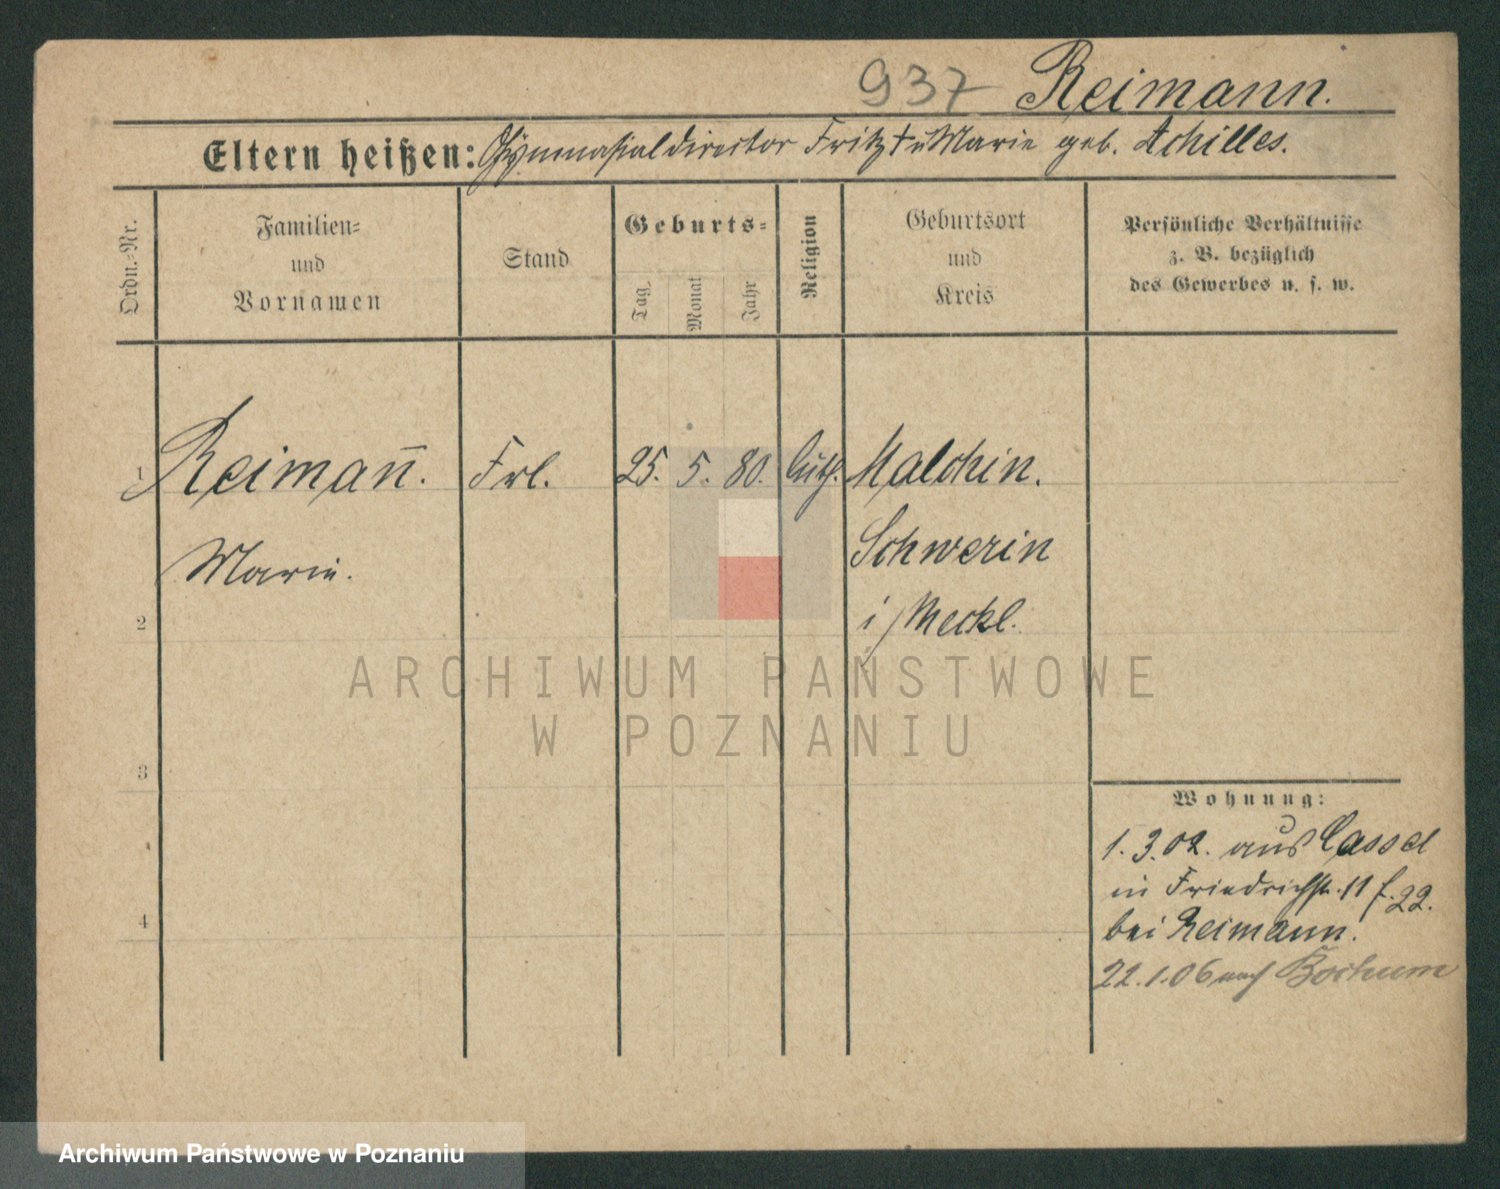 937 Reimann.
Eltern heißen: Gymnasialdirector Fritz † u Marie geb. Achilles.
Ordn.-Nr.
Familien-
und
Vornamen
Stand
Geburts-
Tag
Monat
Jahr
Religion
Geburtsort
und
Kreis
Persönliche Verhältnisse
z. B. bezüglich
des Gewerbes u. s. w.
1 Reiman̄. Frl. 25. 5. 80. luth. Malchin.
Marie. Schwerin
2 i/Meckl.
ARCHIWUM PAŃSTWOWE
W POZNANIU
3
Wohnung:
1. 3. 02. aus Cassel
in Friedrichstr. 11 f. 22.
4 bei Reimann.
22. 1. 06 nach Bochum
Archiwum Państwowe w Poznaniu